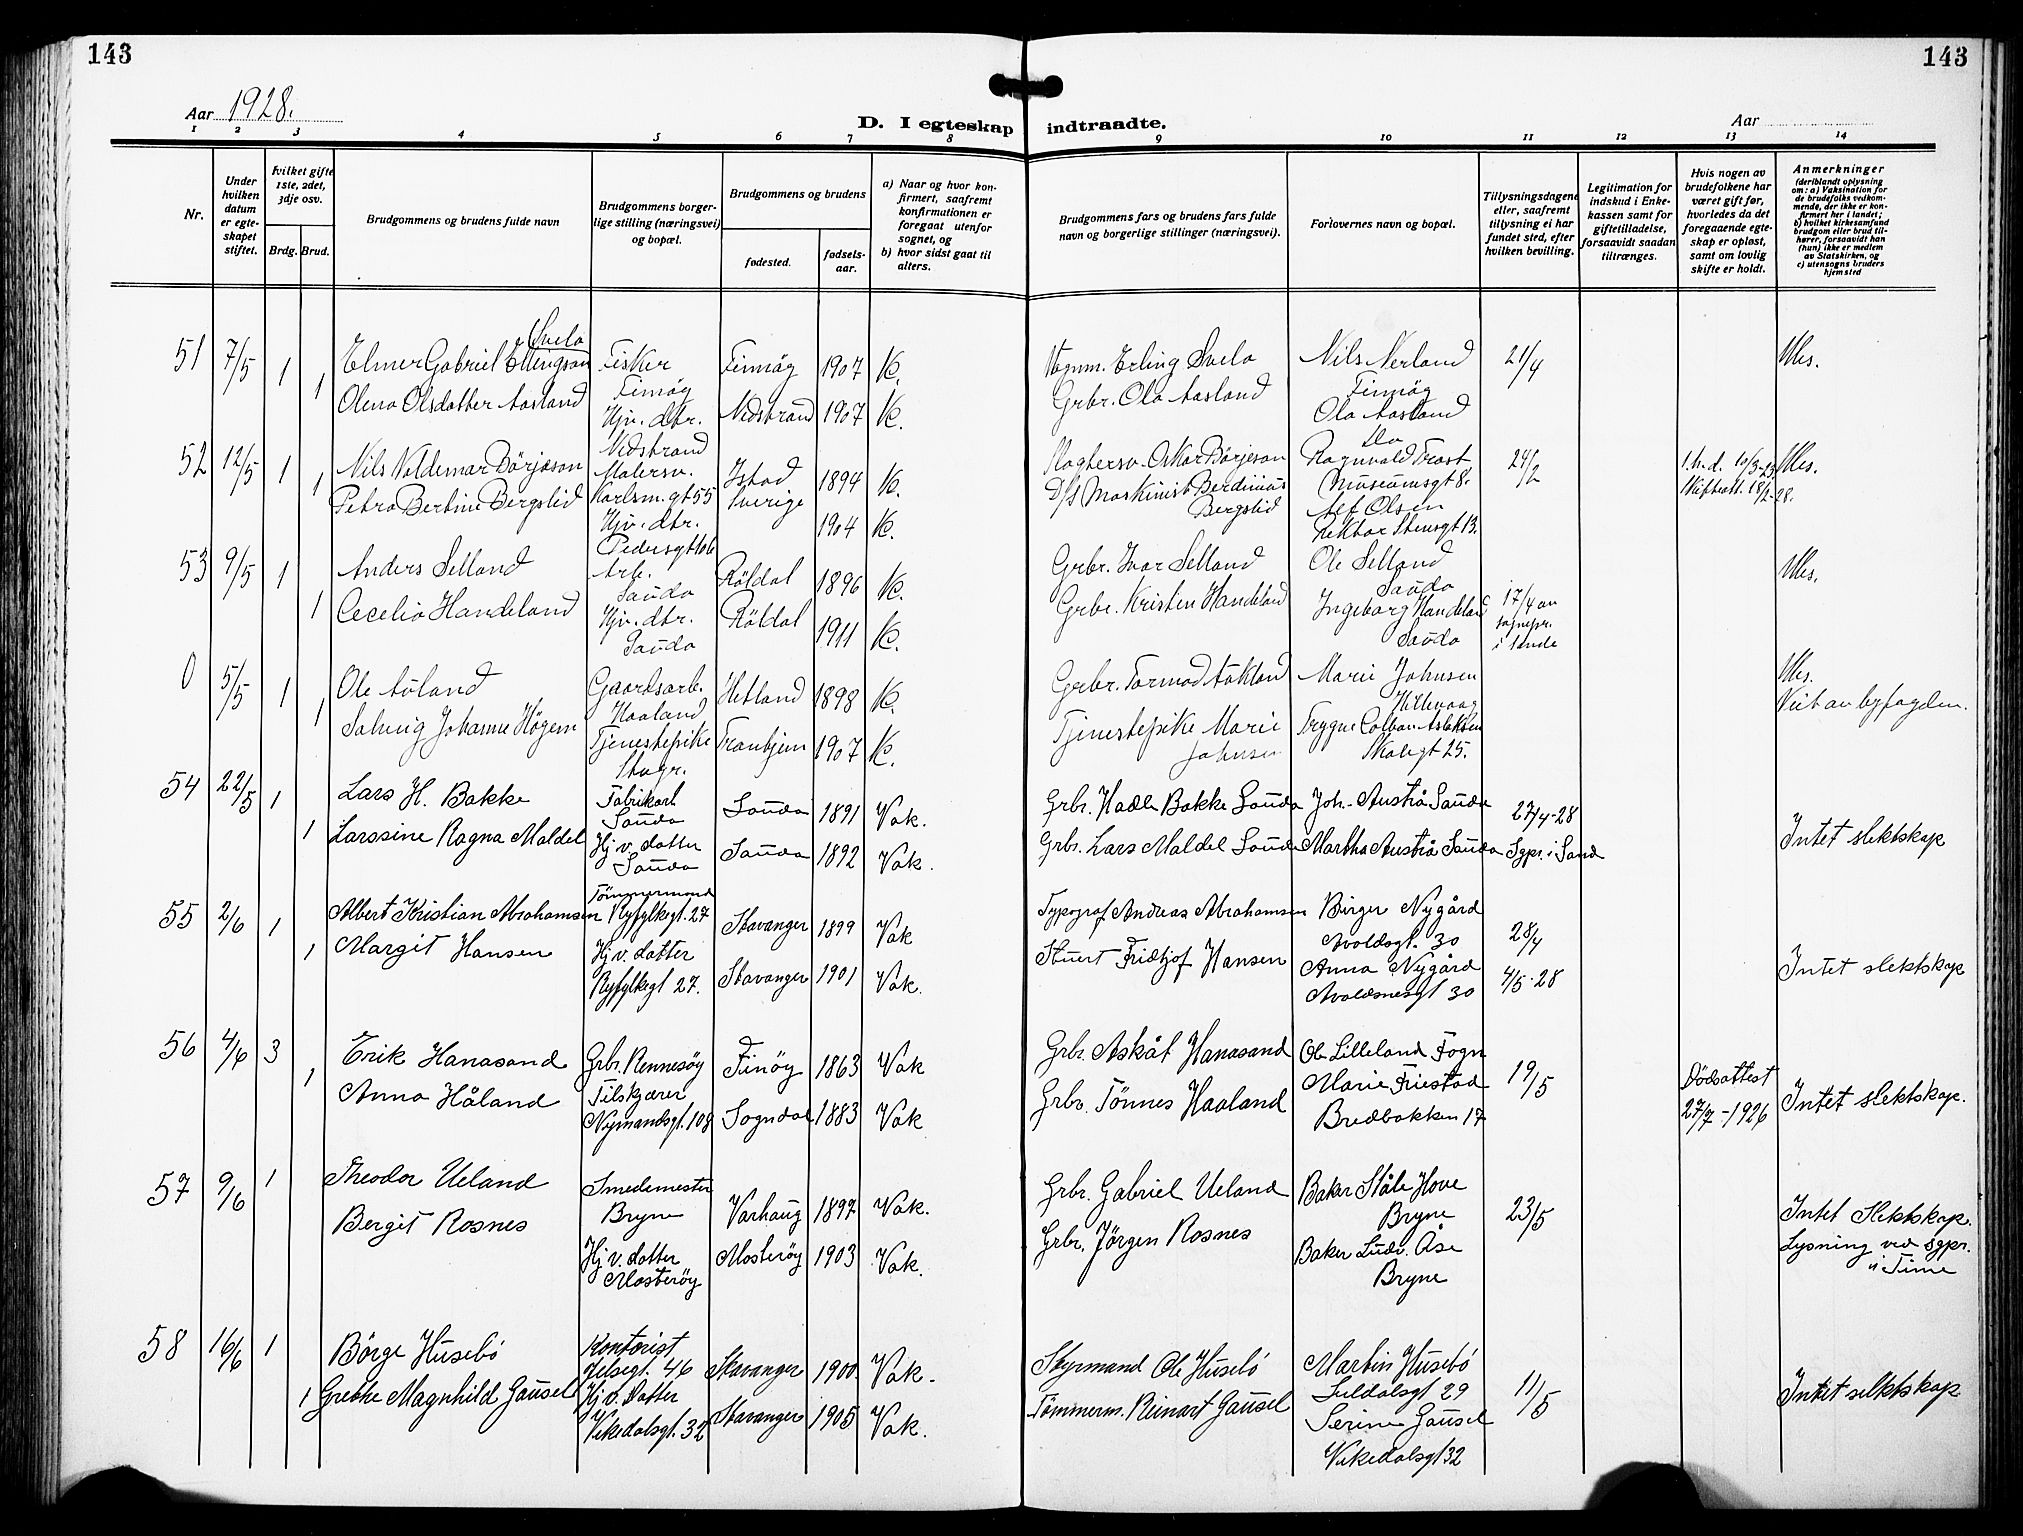 143
143
Aar 1928.
D. I egteskap indtraadte.
Aar
1 2 3 4 5 6 7 8 9 10 11 12 13 14
Nr.
Under hvilken datum er egte-skapet stiftet.
Hvilket gifte 1ste, 2det, 3dje osv.
Brdg. Brud.
Brudgommens og brudens fulde navn
Brudgommens borger-lige stilling (næringsvei) og bopæl.
Brudgommens og brudens
fødested.
fødsels-aar.
a) Naar og hvor kon-firmert, saafremt konfirmationen er foregaat utenfor sognet, og
b) hvor sidst gaat til alters.
Brudgommens fars og brudens fars fulde navn og borgerlige stillinger (næringsvei).
Forlovernes navn og bopæl.
Tillysningsdagene eller, saafremt tillysning ei har fundet sted, efter hvilken bevilling.
Legitimation for indskud i Enke-kassen samt for giftetilladelse, forsaavidt saadan tiltrænges.
Hvis nogen av brudefolkene har været gift før, hvorledes da det foregaaende egte-skap er opløst, samt om lovlig skifte er holdt.
Anmerkninger (deriblandt oplysning om: a) Vaksination for de brudefolks vedkom-mende, der ikke er kon-firmert her i landet; b) hvilket kirkesamfund brudgom eller brud til-hører, forsaavidt han (hun) ikke er medlem av Statskirken, og c) utensogns bruders hjemsted
51 7/5 1 1
Elmer Gabriel Ellingsen (Svela
Olena Olsdatter Aasland
Fisker
Finnøy
Hjv. dtr.
Nedstrand
Finnøy 1907 K.
Nedstrand 1907 K.
Vognm. Erling Svela
Grbr. Ola Aasland
Nils Nerland
Finnøy
Ola Aasland
Do
21/4
Ubs.
52 12/5 1 1
Nils Valdemar Börjeson
Petra Bertine Bergslid
Malersv.
Karlsm.gt 55
Hjv. dtr.
Pedersgt 106
Istad
Sverige
1894 K.
1904 K.
Slagtersv. Oskar Börjeson
D/S Maskinist Berdinius
Bergslid
Ragnvald Trost
Museumsgt 8.
Alf Olsen
Rektor Stensgt 13.
24/2
1.h.d. 10/3-23
Skifteatt. 18/2-28.
Ubs.
53 9/5 1 1
Anders Selland
Cecelia Handeland
Arb.
Sauda
Hjv. dtr.
Sauda
Röldal 1896 K.
Röldal 1911 K.
Grbr. Ivar Selland
Grbr. Kristen Handeland
Ole Selland
Sauda
Ingeborg Handeland
Sauda
17/4 av
sognepr.
i Sande
Ubs.
0 5/5 1 1
Ole Auland
Solveig Johanne Högem
Gaardsarb.
Haaland
Tjenestepike
Stvgr.
Hetland 1898 K.
Trondhjem 1907 K.
Grbr. Tormod Aakland
Tjenestepike Marie
Johnsen
Marie Johnsen
Hillevaag
Trygve Colban Aslaksen
Skolegt 25.
Ubs.
Viet av byfogden.
54 22/5 1 1
Lars H. Bakke
Larssine Ragna Maldal
Fabrikarb
Sauda
Hj v. datter
Sauda
Sauda 1891 Vak.
Sauda 1892 Vak.
Grbr. Hadle Bakke Sauda
Grbr. Lars Maldel Sauda
Joh. Austrå Sauda
Martha Austrå Sauda
27/4-28
Sgpr. i Sand
Intet slektskap
55 2/6 1 1
Albert Kristian Abrahamsen
Margit Hansen
Tömmermand
Ryfylkegt. 27
Hj v. datter
Ryfylkegt 27.
Stavanger 1899 Vak
Stavanger 1901 Vak.
Typograf Andreas Abrahamsen
Stuert Fridtjof Hansen
Birger Nygård
Avaldsgt. 30
Anna Nygård
Avaldsnesgt 30
28/4
4/5-28
Intet slektskap
56 4/6 3 1
Erik Hanasand
Anna Håland
Grbr. Rennesöy
Tilskjærer
Nymandsgt. 108
Finöy 1863 Vak
Sogndal 1883 Vak
Grbr. Askåt Hanasand
Grbr. Tönnes Haaland
Ole Lilleland Fogn
Marie Friestad
Bredbakken 17
19/5
Dödsattest
27/7-1926
Intet slektskap.
57 9/6 1
Theodor Ueland
Bergit Rosnes
Smedemester
Bryne
Hj v. datter
Mosteröy
Varhaug 1897 Vak.
Mosteröy 1903 Vak.
Grbr. Gabriel Ueland
Grbr. Jörgen Rosnes
Baker Ståle Hove
Bryne
Baker Ludv. Åse
Bryne
23/5
Intet Slektskap.
Lysning ved sgpr.
i Time
58 16/6 1 1
Börge Husebö
Grethe Magnhild Gausel
Kontorist
Jelsegt. 46
Hj v. Datter
Vikedalsgt. 32
Stavanger 1900 Vak.
Stavanger 1905 Vak.
Styrmand Ole Husebö
Tömmerm. Reinart Gausel
Martin Husebö
Suldalsgt 29
Serine Gausel
Vikedalsgt 32
11/5
Intet selktskap